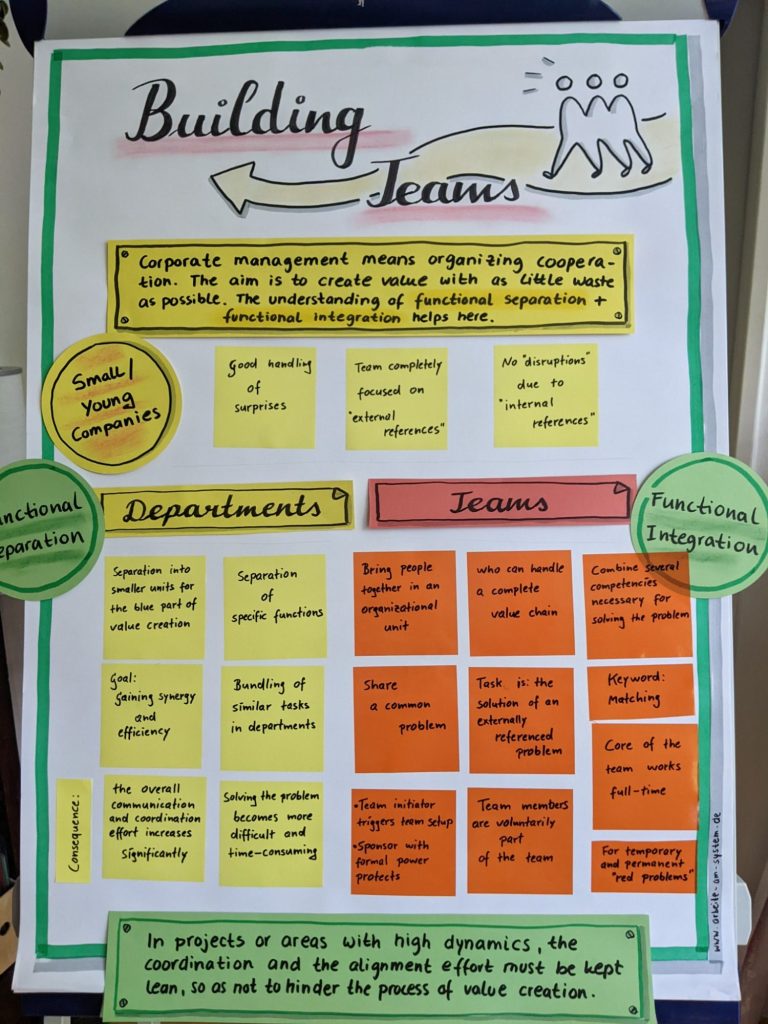 Building
Teams
Corporate management means organizing coopera-
tion. The aim is to create value with as little waste
as possible. The understanding of functional separation +
functional integration helps here.
Small/
Young
Companies
Good handling
of
surprises
Team completely
focused on
"external
references"
No "disruptions"
due to
"internal
references"
Departments
Teams
Functional
Integration
Separation into
smaller units for
the blue part of
value creation
Separation
of
specific functions
Bring people
together in an
organizational
unit
who can handle
a complete
value chain
Combine several
competencies
necessary for
solving the problem
Goal:
gaining synergy
and
efficiency
Bundling of
similar tasks
in departments
Share
a common
problem
Task is: the
solution of an
externally
referenced
problem
Keyword:
Matching
Core of the
team works
full-time
Consequence:
the overall
communication
and coordination
effort increases
significantly
Solving the problem
becomes more
difficult and
time-consuming
• Team initiator
triggers team setup
• Sponsor with
formal power
protects
Team members
are voluntarily
part
of the team
For temporary
and permanent
"red problems"
www.arbeite-am-system.de
In projects or areas with high dynamics, the
coordination and the alignment effort must be kept
lean, so as not to hinder the process of value creation.